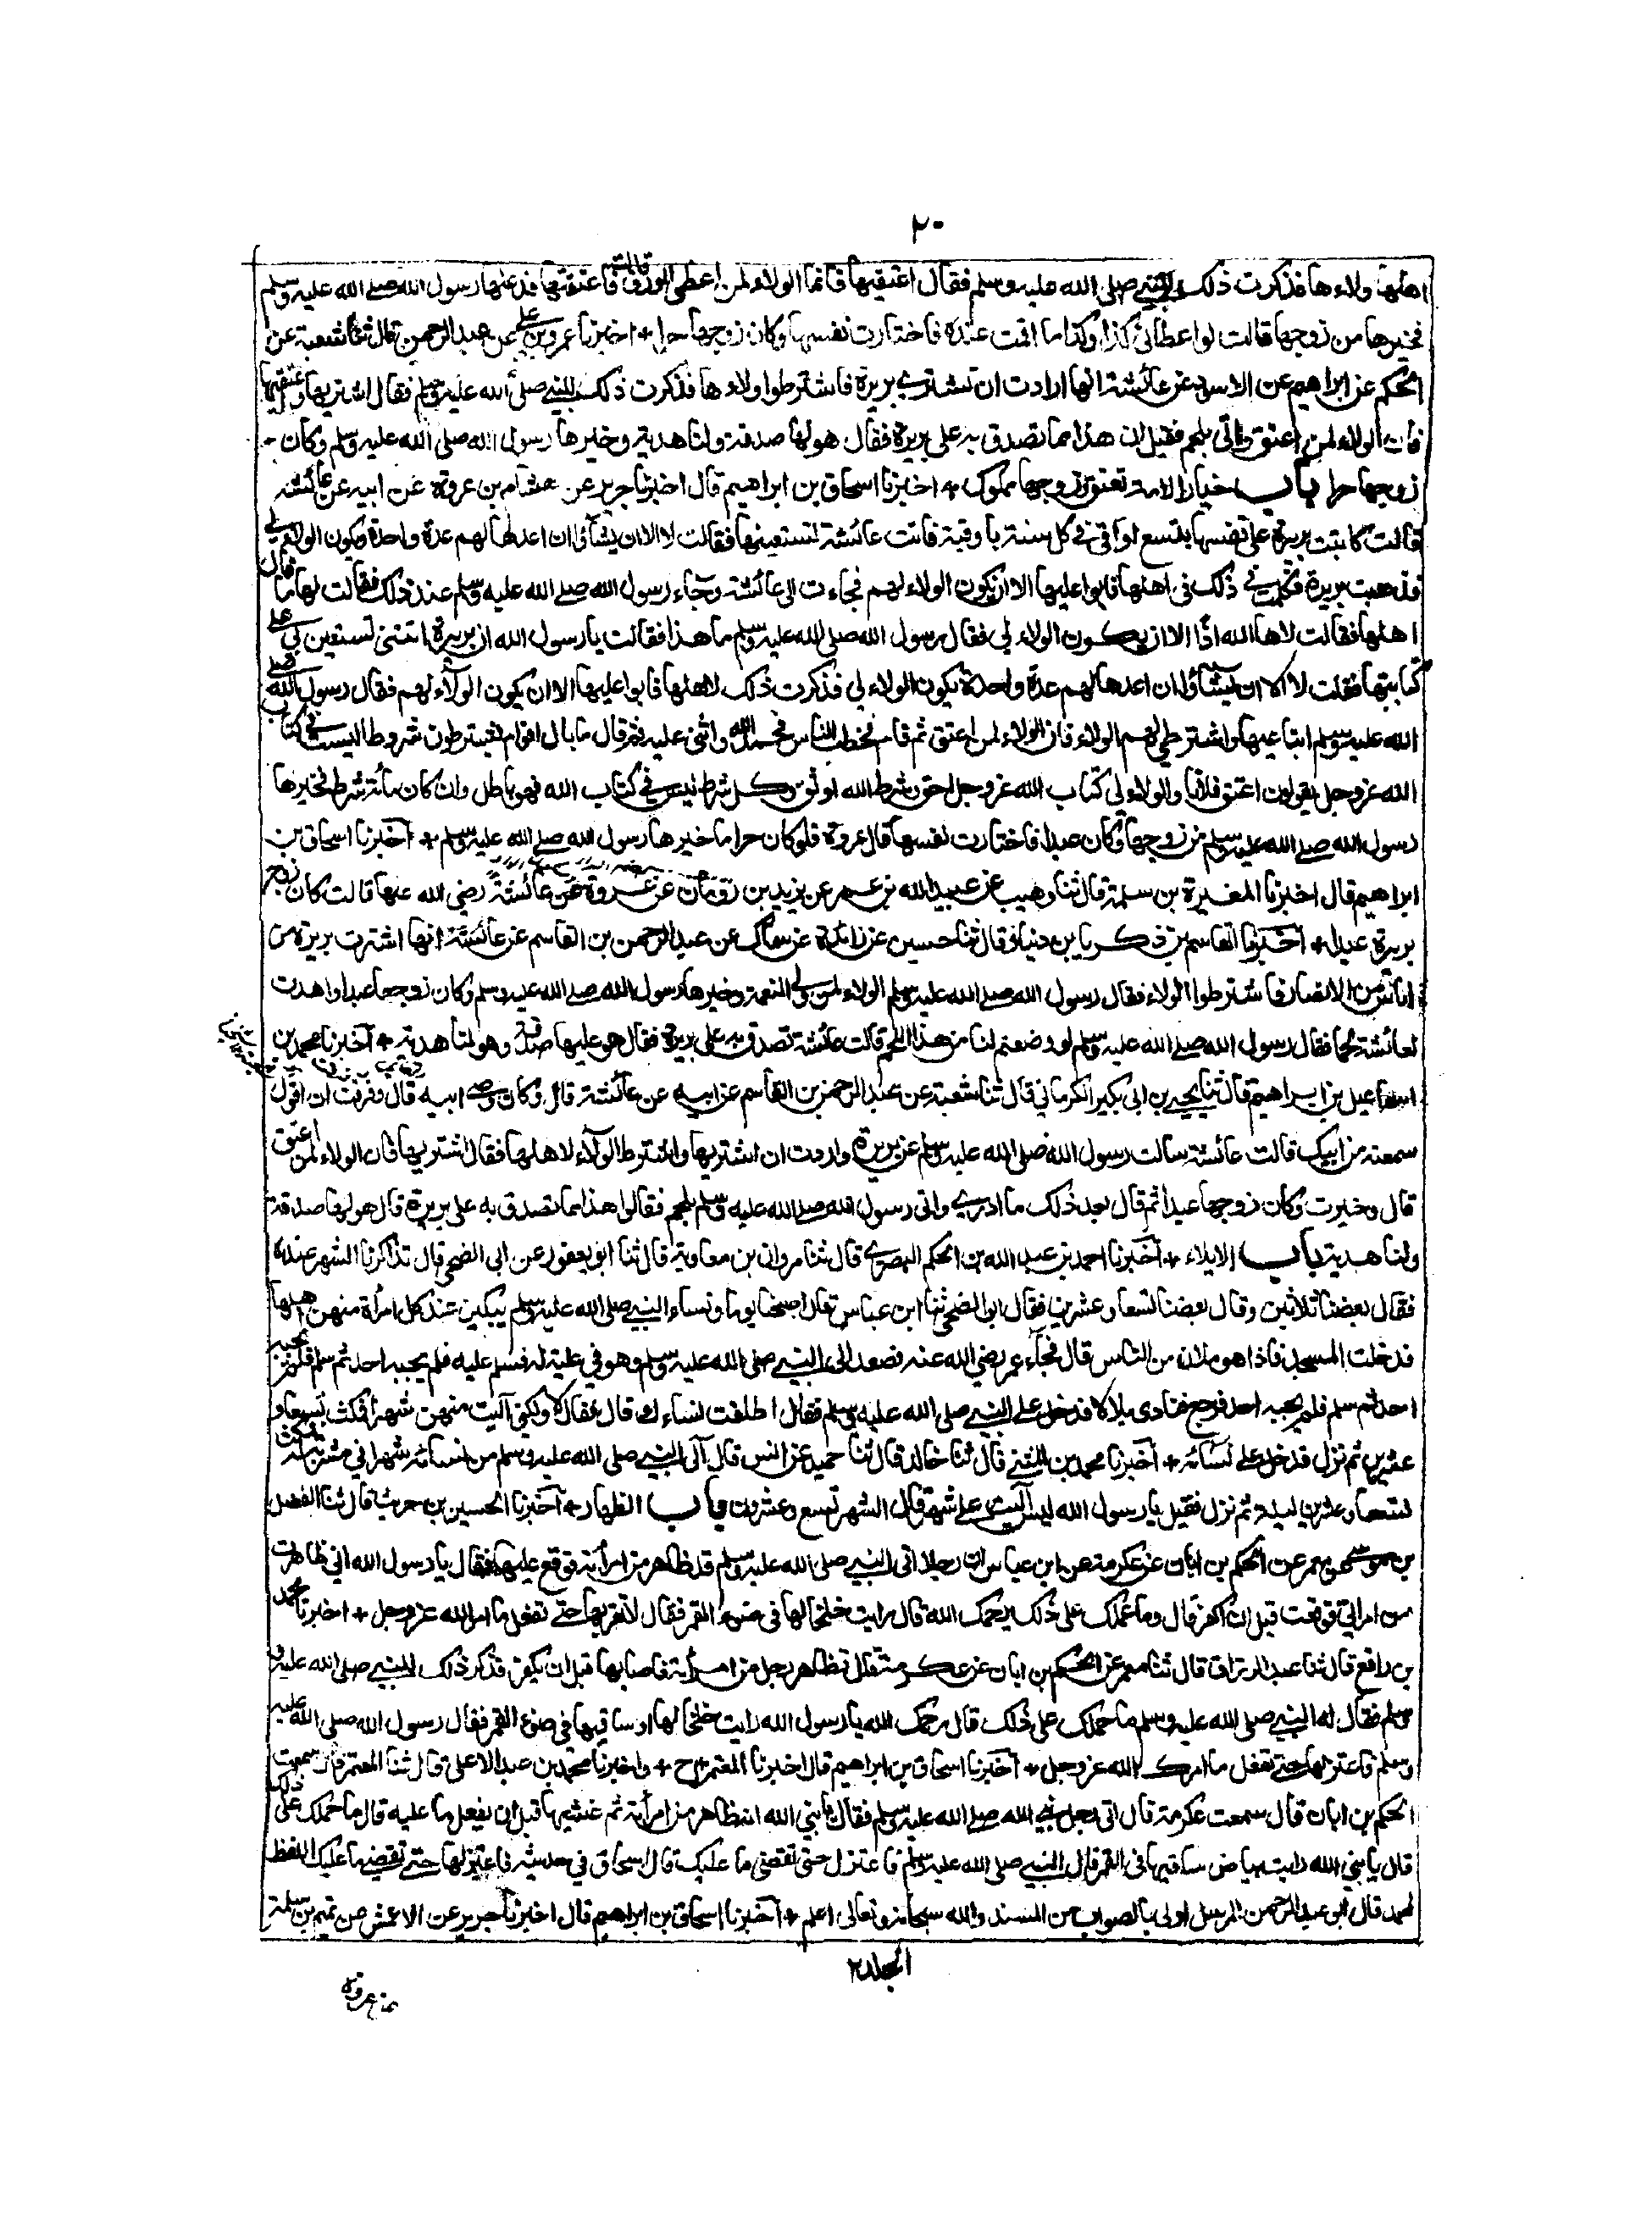 ٢٠
اهلها ولاءها فذكرت ذلك للنبي صلى الله عليه وسلم فقال اعتقيها فانما الولاء لمن اعطى الورق قالت فاعتقتها فدعاها رسول الله صلى الله عليه وسلم
فخيرها من زوجها قالت لو اعطانى كذا وكذا ما اقمت عنده فاختارت نفسها وكان زوجها حرا + اخبرنا عمرو بن على عن عبد الرحمن قال ثنا شعبة عن
الحكم عن ابراهيم عن الاسود عن عائشة انها ارادت ان تشترى بريرة فاشترطوا ولاءها فذكرت ذلك للنبي صلى الله عليه وسلم فقال اشتريها واعتقيها
فان الولاء لمن اعتق واتى بلحم فقيل ان هذا مما تصدق به على بريرة فقال هو لها صدقة ولنا هدية وخيرها رسول الله صلى الله عليه وسلم وكان
زوجها حرا باب خيار الامة تعتق وزوجها مملوك + اخبرنا اسحاق بن ابراهيم قال اخبرنا جرير عن هشام بن عروة عن ابيه عن عائشة
قالت كاتبت بريرة على نفسها بتسع اواقى في كل سنة باوقية فاتت عائشة تستعينها فقالت لا الا ان يشاؤا ان اعدها لهم عدة واحدة ويكون الولاء لي
فذهبت بريرة فكلمت في ذلك فى اهلها فابوا عليها الا ان يكون الولاء لهم فجاءت الى عائشة وجاء رسول الله صلى الله عليه وسلم عند ذلك فقالت لها ما قال
اهلها فقالت لا ها الله اذا الا ان يكون الولاء لي فقال رسول الله صلى الله عليه وسلم ما هذا فقالت يا رسول الله ان بريرة اتتنى تستعين بي على
كتابتها فقلت لا الا ان يشاؤا ان اعدها لهم عدة واحدة ويكون الولاء لي فذكرت ذلك لاهلها فابوا عليها الا ان يكون الولاء لهم فقال رسول الله صلى
الله عليه وسلم ابتاعيها واشترطي لهم الولاء فان الولاء لمن اعتق ثم قام فخطب الناس فحمد الله واثنى عليه ثم قال ما بال اقوام يشترطون شروطا ليست في كتاب
الله عز وجل يقولون اعتق فلانا والولاء لي كتاب الله عز وجل احق وشرط الله اوثق وكل شرط ليس في كتاب الله فهو باطل وان كان مائة شرط فخيرها
رسول الله صلى الله عليه وسلم من زوجها وكان عبدا فاختارت نفسها قال عروة فلو كان حرا ما خيرها رسول الله صلى الله عليه وسلم + اخبرنا اسحاق بن
ابراهيم قال اخبرنا المغيرة بن سلمة قال ثنا وهيب عن عبيد الله بن عمر عن يزيد بن رومان عن عروة عن عائشة رضي الله عنها قالت كان زوج
بريرة عبدا + اخبرنا القاسم بن ذكريا بن دينار قال ثنا حسين عن زائدة عن سماك عن عبد الرحمن بن القاسم عن عائشة انها اشترت بريرة من
اناس من الانصار فاشترطوا الولاء فقال رسول الله صلى الله عليه وسلم الولاء لمن ولي النعمة وخيرها رسول الله صلى الله عليه وسلم وكان زوجها عبدا واهدت
لعائشة لحما فقال رسول الله صلى الله عليه وسلم لو وضعتم لنا من هذا اللحم قالت عائشة تصدق به على بريرة فقال هو عليها صدقة وهو لنا هدية + اخبرنا محمد بن
اسماعيل بن ابراهيم قال ثنا يحيى بن ابى بكير الكرماني قال ثنا شعبة عن عبد الرحمن بن القاسم عن ابيه عن عائشة قال وكان وصى ابيه قال وفرقت ان اقول
سمعته من ابيك قالت عائشة سالت رسول الله صلى الله عليه وسلم عن بريرة واردت ان اشتريها واشترط الولاء لاهلها فقال اشتريها فان الولاء لمن اعتق
قال وخيرت وكان زوجها عبدا ثم قال بعد ذلك ما ادرى واتى رسول الله صلى الله عليه وسلم بلحم فقالوا هذا مما تصدق به على بريرة قال هو لها صدقة
ولنا هدية باب الايلاء + اخبرنا احمد بن عبد الله بن الحكم البصرى قال ثنا مروان بن معاوية قال ثنا ابو يعفور عن ابى الضحى قال تذاكرنا الشهر عنده
فقال بعضنا ثلاثين وقال بعضنا تسعا وعشرين فقال ابو الضحى ثنا ابن عباس قال اصبحنا يوما ونساء النبي صلى الله عليه وسلم يبكين عند كل امرأة منهن اهلها
فدخلت المسجد فاذا هو ملآن من الناس قال فجاء عمر رضي الله عنه فصعد الى النبي صلى الله عليه وسلم وهو في علية له فسلم عليه فلم يجبه احد ثم سلم فلم يجبه
احد ثم سلم فلم يجبه احد فرجع فنادى بلالا فدخل على النبي صلى الله عليه وسلم فقال اطلقت نساءك قال فقال لا ولكنى آليت منهن شهرا فمكث تسعا و
عشرين ثم نزل فدخل على نسائه + اخبرنا محمد بن المثنى قال ثنا خالد قال ثنا حميد عن انس قال آلى النبي صلى الله عليه وسلم من نسائه شهرا في مشربة له فمكث
تسعا وعشرين ليلة ثم نزل فقيل يا رسول الله اليس آليت على شهر قال الشهر تسع وعشرون باب الظهار + اخبرنا الحسين بن حريث قال ثنا الفضل
بن موسى عن معمر عن الحكم بن ابان عن عكرمة عن ابن عباس ان رجلا اتى النبي صلى الله عليه وسلم قد ظاهر من امرأته فوقع عليها فقال يا رسول الله انى ظاهرت
من امرأتي فوقعت قبل ان اكفر قال وما حملك على ذلك يرحمك الله قال رايت خلخالها فى ضوء القمر فقال لا تقربها حتى تفعل ما امر الله عز وجل + اخبرنا محمد
بن رافع قال ثنا عبد الرزاق قال ثنا معمر عن الحكم بن ابان عن عكرمة قال تظاهر رجل من امرأته فاصابها قبل ان يكفر فذكر ذلك للنبي صلى الله عليه و
سلم فقال له النبي صلى الله عليه وسلم ما حملك على ذلك قال رحمك الله يا رسول الله رايت خلخالها او ساقيها فى ضوء القمر فقال رسول الله صلى الله عليه
وسلم فاعتزلها حتى تفعل ما امرك الله عز وجل + اخبرنا اسحاق بن ابراهيم قال اخبرنا المعتمر ح + واخبرنا محمد بن عبد الاعلى قال ثنا المعتمر قال سمعت
الحكم بن ابان قال سمعت عكرمة قال اتى رجل نبي الله صلى الله عليه وسلم فقال يا نبي الله انه ظاهر من امرأته ثم غشيها قبل ان يفعل ما عليه قال ما حملك على ذلك
قال يا نبي الله رايت بياض ساقيها فى القمر قال النبي صلى الله عليه وسلم فاعتزل حتى تقضى ما عليك قال اسحاق في حديثه فاعتزلها حتى تقضي ما عليك اللفظ
لمحمد قال ابو عبد الرحمن المرسل اولى بالصواب من المسند والله سبحانه وتعالى اعلم + اخبرنا اسحاق بن ابراهيم قال اخبرنا جرير عن الاعمش عن تميم بن سلمة
المجلد ٢
عن عروة